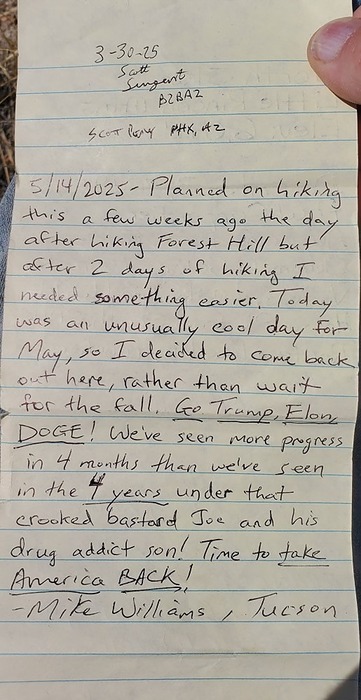 3-30-25
Scott
Surgent
BZBAZ
Scot Peny PHX, AZ
5/14/2025- Planned on hiking
this a few weeks ago the day
after hiking Forest Hill but
after 2 days of hiking I
needed something easier. Today
was an unusually cool day for
May, so I decided to come back
out here, rather than wait
for the fall. Go Trump, Elon,
DOGE! We've seen more progress
in 4 months than we've seen
in the 4 years under that
crooked bastard Joe and his
drug addict son! Time to take
America BACK!
-Mike Williams, Tucson